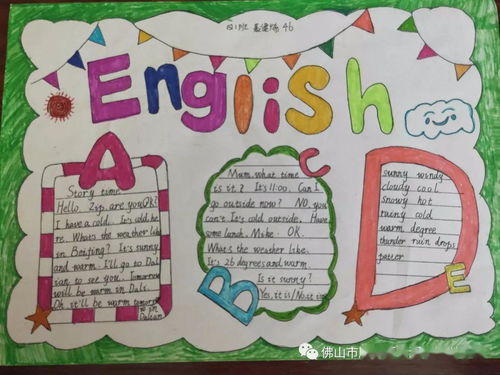 四1班 46
English
A
Story time
Hello Zip, are you OK?
I have a cold. It's cold he
re. Whats the weather like
in Beijing? It's sunny
and warm. I'll go to Dal
ian to see you. Tomorrow
will be warm in Dali
Oh it'll be warm tomorrow
in Dalian
C
Mum, what time
is it? It's 11:00. Can I
go outside now? NO, you
can't. It's cold outside. Have
some lunch. Mike. OK.
What's the weather like.
It's 26 degrees and warm.
Is it sunny?
Yes, it is/No, it isn
B
D
sunny windy
cloudy cool
snowy hot
rainy cold
warm degree
thunder rain drops
patter
E
佛山市